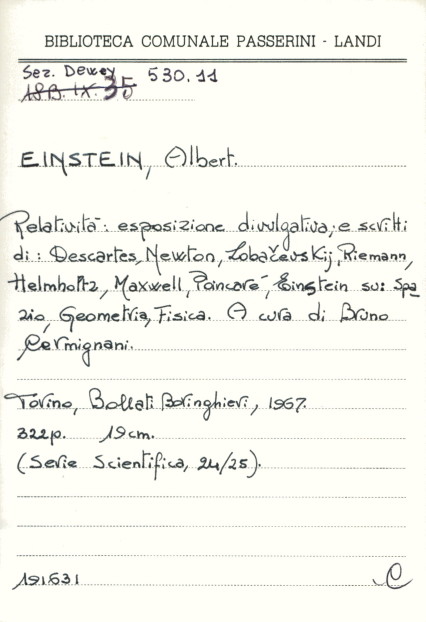 BIBLIOTECA COMUNALE PASSERINI - LANDI
Sez. Dewey 530.11
18B. IX. 35
EINSTEIN, Albert.
Relatività: esposizione divulgativa; e scritti
di: Descartes, Newton, Lobačevskij, Riemann,
Helmholtz, Maxwell, Poincaré, Einstein su: Spa
zio, Geometria, Fisica. A cura di Bruno
Cermignani.
Torino, Bollati Boringhieri, 1967.
322p. 19cm.
(Serie Scientifica, 24/25).
191631 C